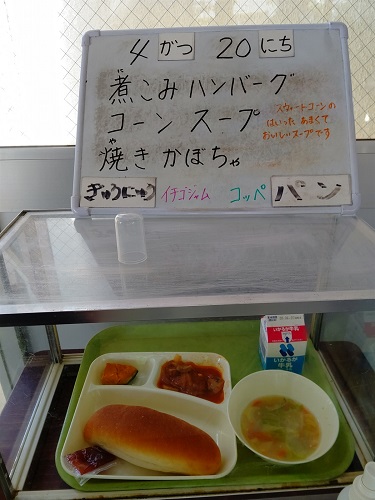 4 がつ 20 にち
煮こみハンバーグ
に
コーン スープ
スウィートコーンの
はいった あまくて
おいしいスープです
焼き かぼちゃ
や
ぎゅうにゅう イチゴジャム コッペ パン
いかるが
牛乳